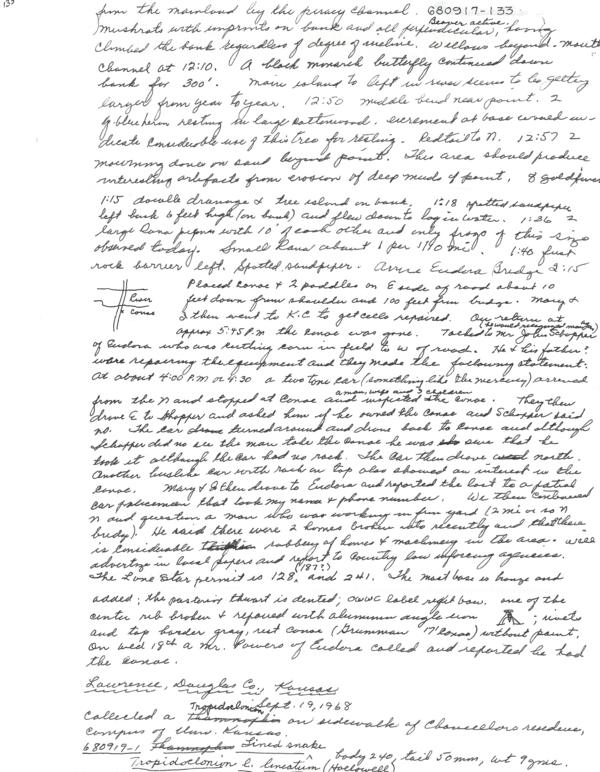 133
from the mainland by the piracy channel. 680917-133
Beaver active.
Muskrats with imprints on bank and all perpendicular, having
climbed the bank regardless of degree of incline. Willows beyond - mouth
channel at 12:10. A black monarch butterfly continued down
bank for 300'. Main island to left in river seems to be getting
larger from year to year. 12:50 middle bend near point. 2
g. blue heron resting in large cottonwood. excrement at base
dicate considerable use of this tree for resting. Redtail to N. 12:57 2
mourning doves on sand beyond point. This area should produce
interesting artefacts from erosion of deep muds of point, 8 goldfinch
1:15 double drainage & tree island on bank. 1:18 spotted sandpiper
left bank 6 feet high (on bank) and flew down to log in water. 1:36 2
large Rana pipiens with 10' of each other and only frogs of this size
observed today. Small Rana about 1 per 1/10 mi. 1:40 first
rock barrier left. Spotted sandpiper. Arrive Eudora Bridge 2:15
River
canoe
Placed canoe & 2 paddles on E side of road about 10
feet down from shoulder and 100 feet from bridge. Mary &
I then went to K.C to get cello repaired. Our return at
approx 5:45 P.M the canoe was gone. Talked to Mr John Schopper
of Eudora who was cutting corn in field to W of road. He & his father?
were repairing the equipment and they made the following statement:
At about 4:00 P.M or 4:30 a two tone car (something like the mercury) arrived
a man, wife and 3 children
from the N and stopped at canoe and inspected the canoe. They then
drove E to Shopper and asked him if he owned the canoe and Schopper said
no. The car drove turned around and drove back to canoe and although
Schopper did no see the man take the canoe he was sure that he
took it although the car had no rack. The car then drove north.
Another buslike car with rack on top also showed an interest in the
canoe. Mary & I then drove to Eudora and reported the lost to a patrol
car policeman that took my name & phone number. We then
N and question a man who was working in his yard (2 mi or so N
bridge). He said there were 2 homes broken into recently and that there
is considerable robbery of homes & machinery in the area. Will
advertize in local papers and report to country law inforcing agencies.
(187?)
The Lone Star permit is 128, and 241. The mast base is bronze and
added; the posterior thwart is dented; OWWC label right bow. one of the
center rib broken & repaired with aluminum angle iron ; rivets
and top border gray, rest canoe (Grumman 17' canoe) without paint.
On wed 18th a Mr. Powers of Eudora called and reported he had
the canoe.
Lawrence, Douglas Co., Kansas
Sept. 19, 1968
Tropidoclonion
Collected a Thamnophis on sidewalk of Chancellors residence,
campus of Univ. Kansas.
680919-1 Thamnophis Lined snake
Tropidoclonion l. lineatum (Hallowell) body 240, tail 50mm, wt 9gms.